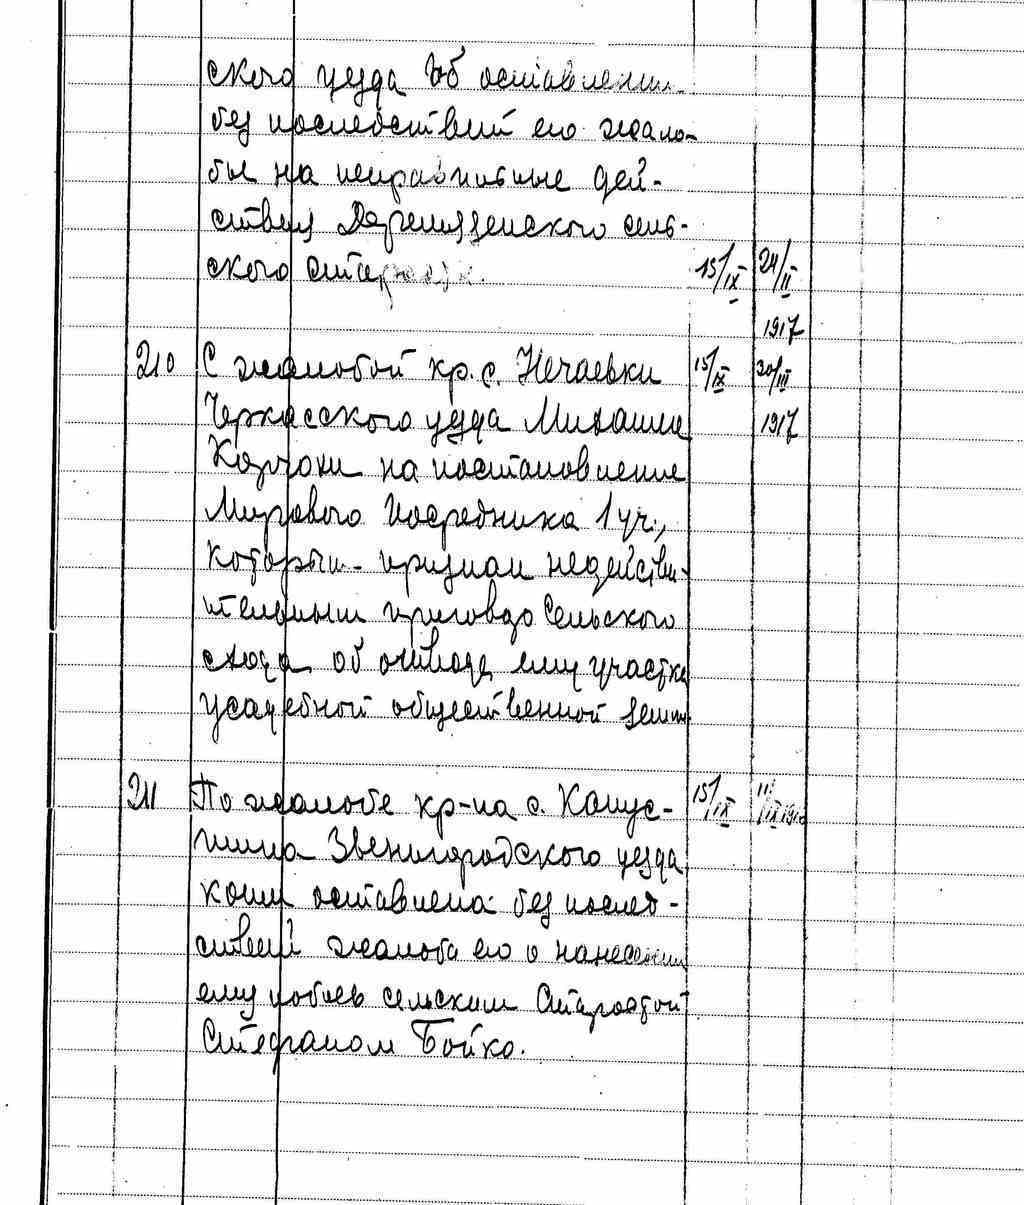 ского уезда об оставлении
без последствий его жало-
бы на неправильные дей-
ствия сель-
ского старосты. 15/IX 24/II
1917
210 С жалобой кр. с. Нечаевки 15/IX 30/III
Черкасского уезда Михаила 1917
на постановление
Мирового Посредника 1 уч.,
которым признан недействи-
тельным приговор Сельского
схода об отводе ему участка
усадебной общественной земли
211 По жалобе кр-на с. Капус- 15/IX
тина Звенигородского уезда
коим оставлена без послед-
ствий жалоба его о нанесении
ему побоев сельским Старостой
Стефаном Бойко.